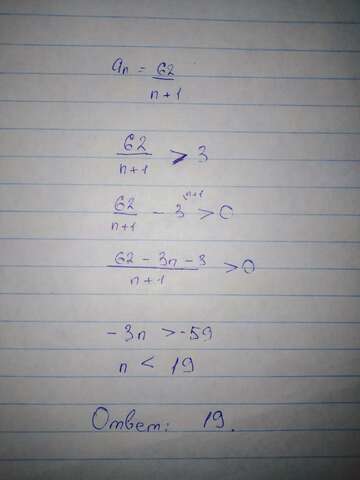 an = 62/(n+1)
62/(n+1) > 3
62/(n+1) - 3^(n+1) > 0
(62 - 3n - 3)/(n+1) > 0
-3n > -59
n < 19
Ответ: 19.